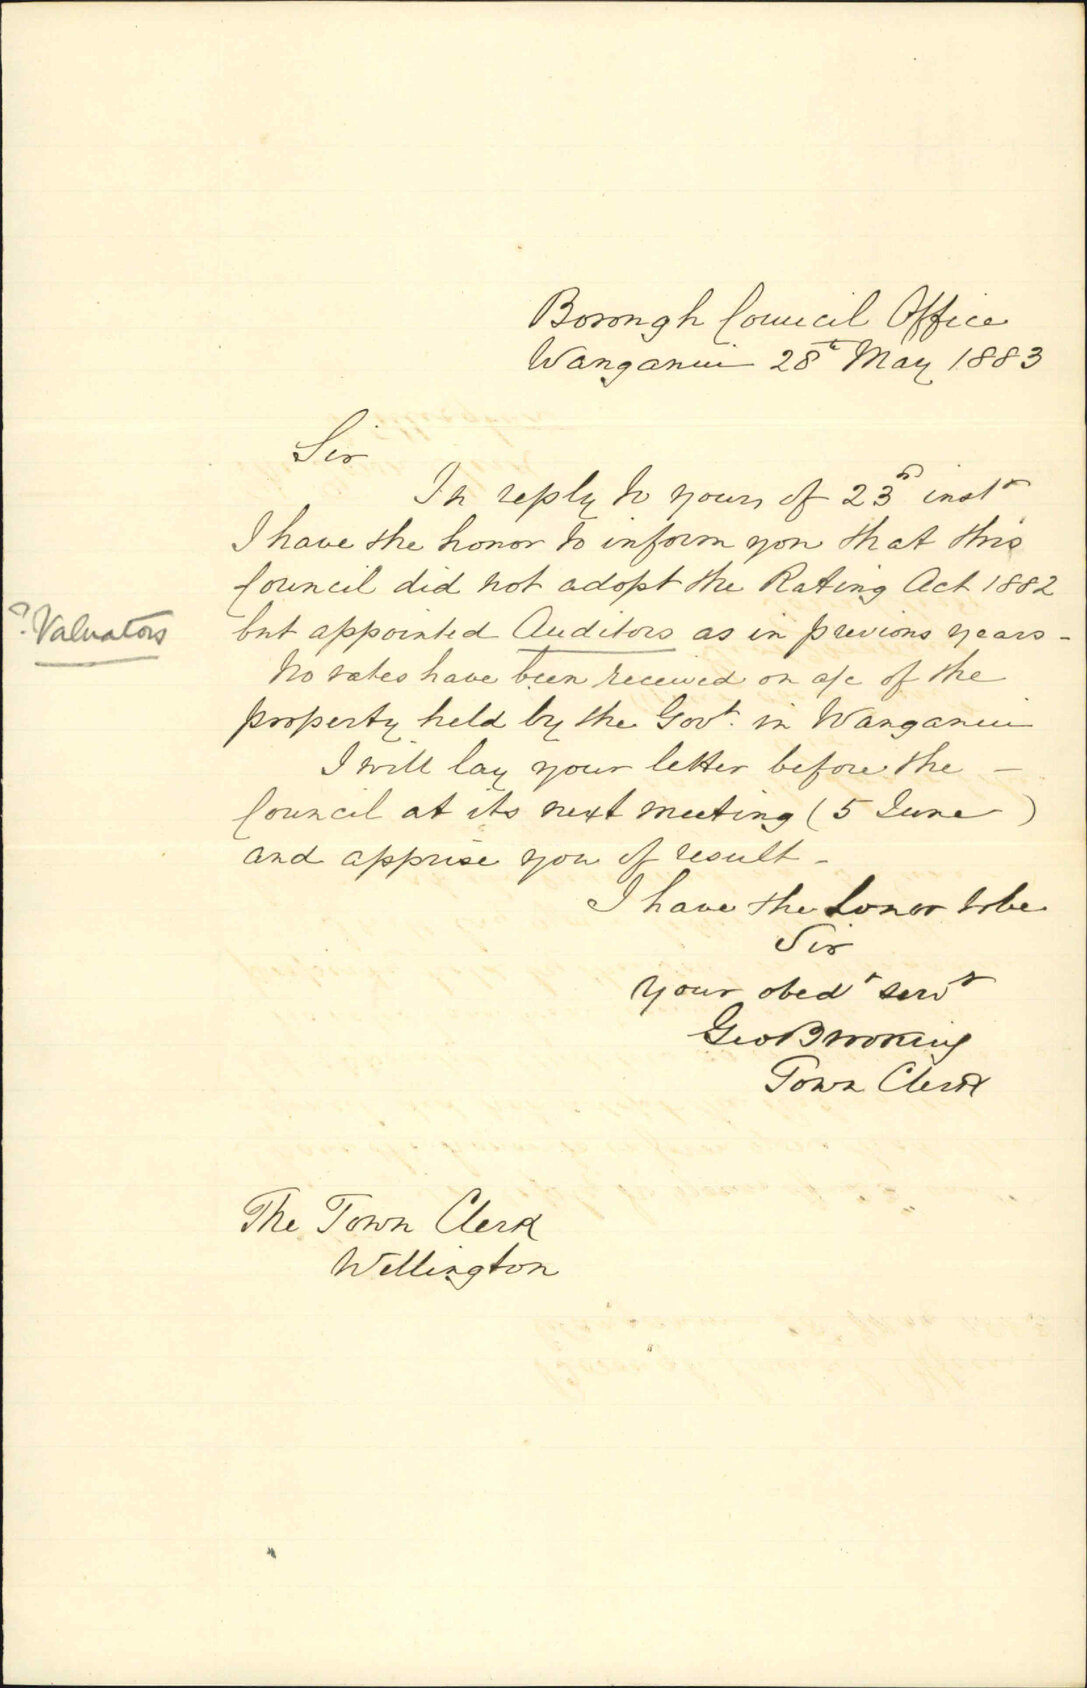 Borough Council Office
Wanganui 28th May 1883
Sir
In reply to yours of 23rd instt
I have the honor to inform you that this
Council did not adopt the Rating Act 1882
? Valuators
but appointed Auditors as in previous years -
No rates have been received on a/c of the
property held by the Govt. in Wanganui
I will lay your letter before the -
Council at its next meeting (5 June )
and apprise you of result -
I have the honor to be
Sir
Your obedt servt
Geo Brooking
Town Clerk
The Town Clerk
Wellington